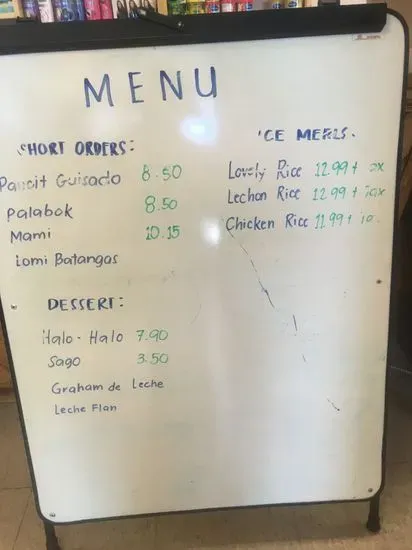 MENU
SHORT ORDERS:
Pancit Guisado 8.50
Palabok 8.50
Mami 10.15
Lomi Batangas
DESSERT:
Halo-Halo 7.90
Sago 3.50
Graham de Leche
Leche Flan
CE MEALS.
Lovely Rice 12.99 + ax
Lechon Rice 12.99 + Tax
Chicken Rice 11.99 +